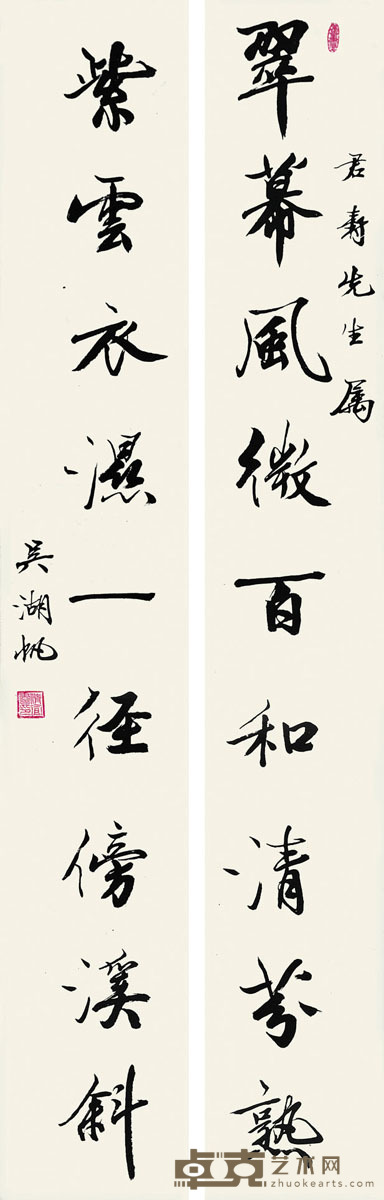 君寿先生属
翠幕風微百和清芬熟
紫雲衣濕一徑傍溪斜
吴湖帆
卓克艺术网
zhuokearts.com